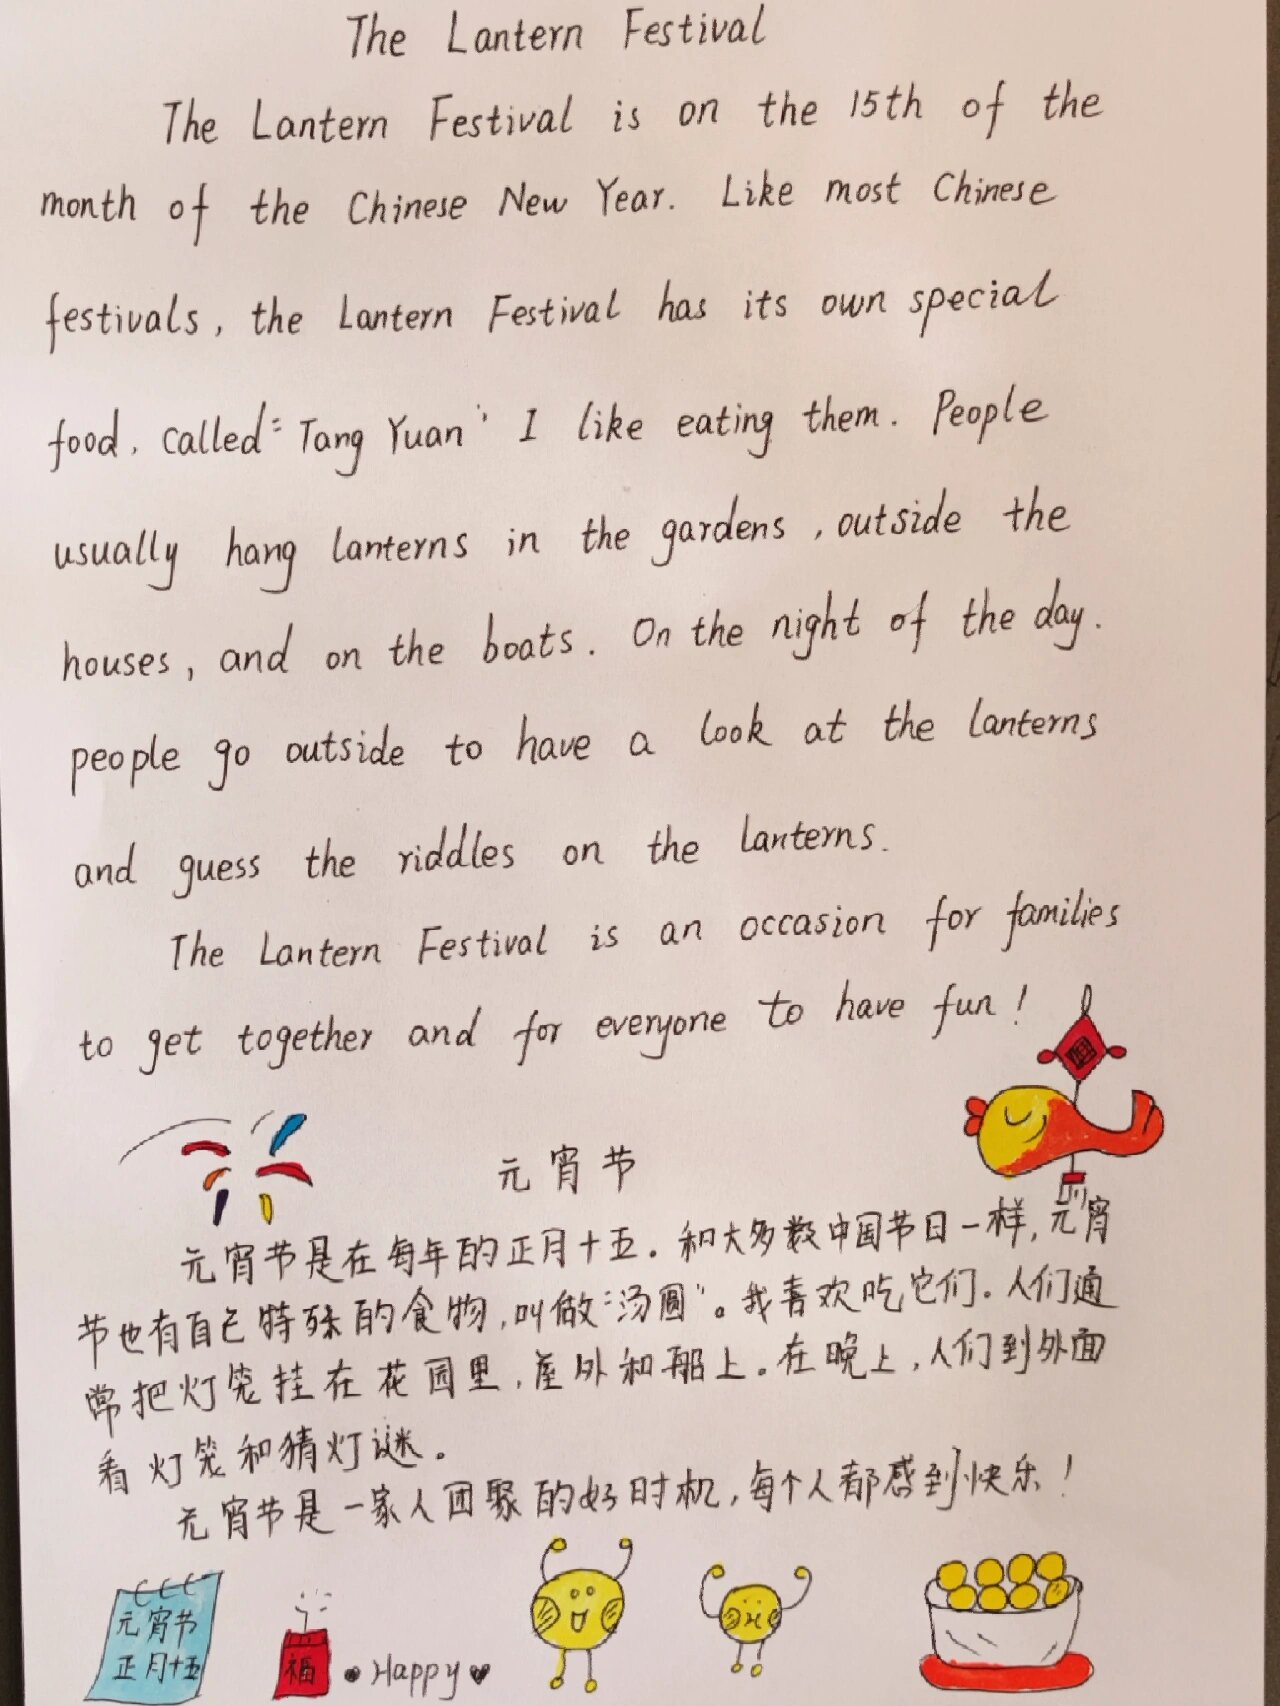 The Lantern Festival
The Lantern Festival is on the 15th of the
month of the Chinese New Year. Like most Chinese
festivals, the Lantern Festival has its own special
food, called "Tang Yuan" I like eating them. People
usually hang lanterns in the gardens, outside the
houses, and on the boats. On the night of the day.
people go outside to have a look at the lanterns
and guess the riddles on the lanterns.
The Lantern Festival is an occasion for families
to get together and for everyone to have fun!
元宵节
元宵节是在每年的正月十五。和大多数中国节日一样,元宵
节也有自己特殊的食物,叫做"汤圆"。我喜欢吃它们。人们通
常把灯笼挂在花园里,屋外和船上。在晚上,人们到外面
看灯笼和猜灯谜。
元宵节是一家人团聚的好时机,每个人都感到快乐!
元宵节
正月十五
福
Happy